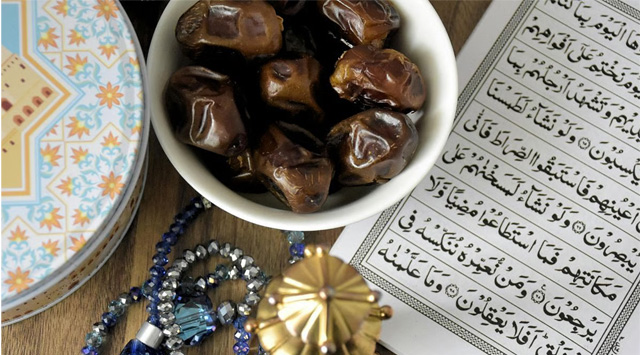 اليوم بما
نختم على أفواههم
وتشهد أرجلهم بما
يكسبون ۝ ولو نشاء لطمسنا
أعينهم فاستبقوا الصراط فأنى
يبصرون ۝ ولو نشاء لمسخنهم على
مكانتهم فما استطاعوا مضيا ولا
يرجعون ۝ ومن نعمره ننكسه في
أفلا يعقلون ۝ وما علمنه